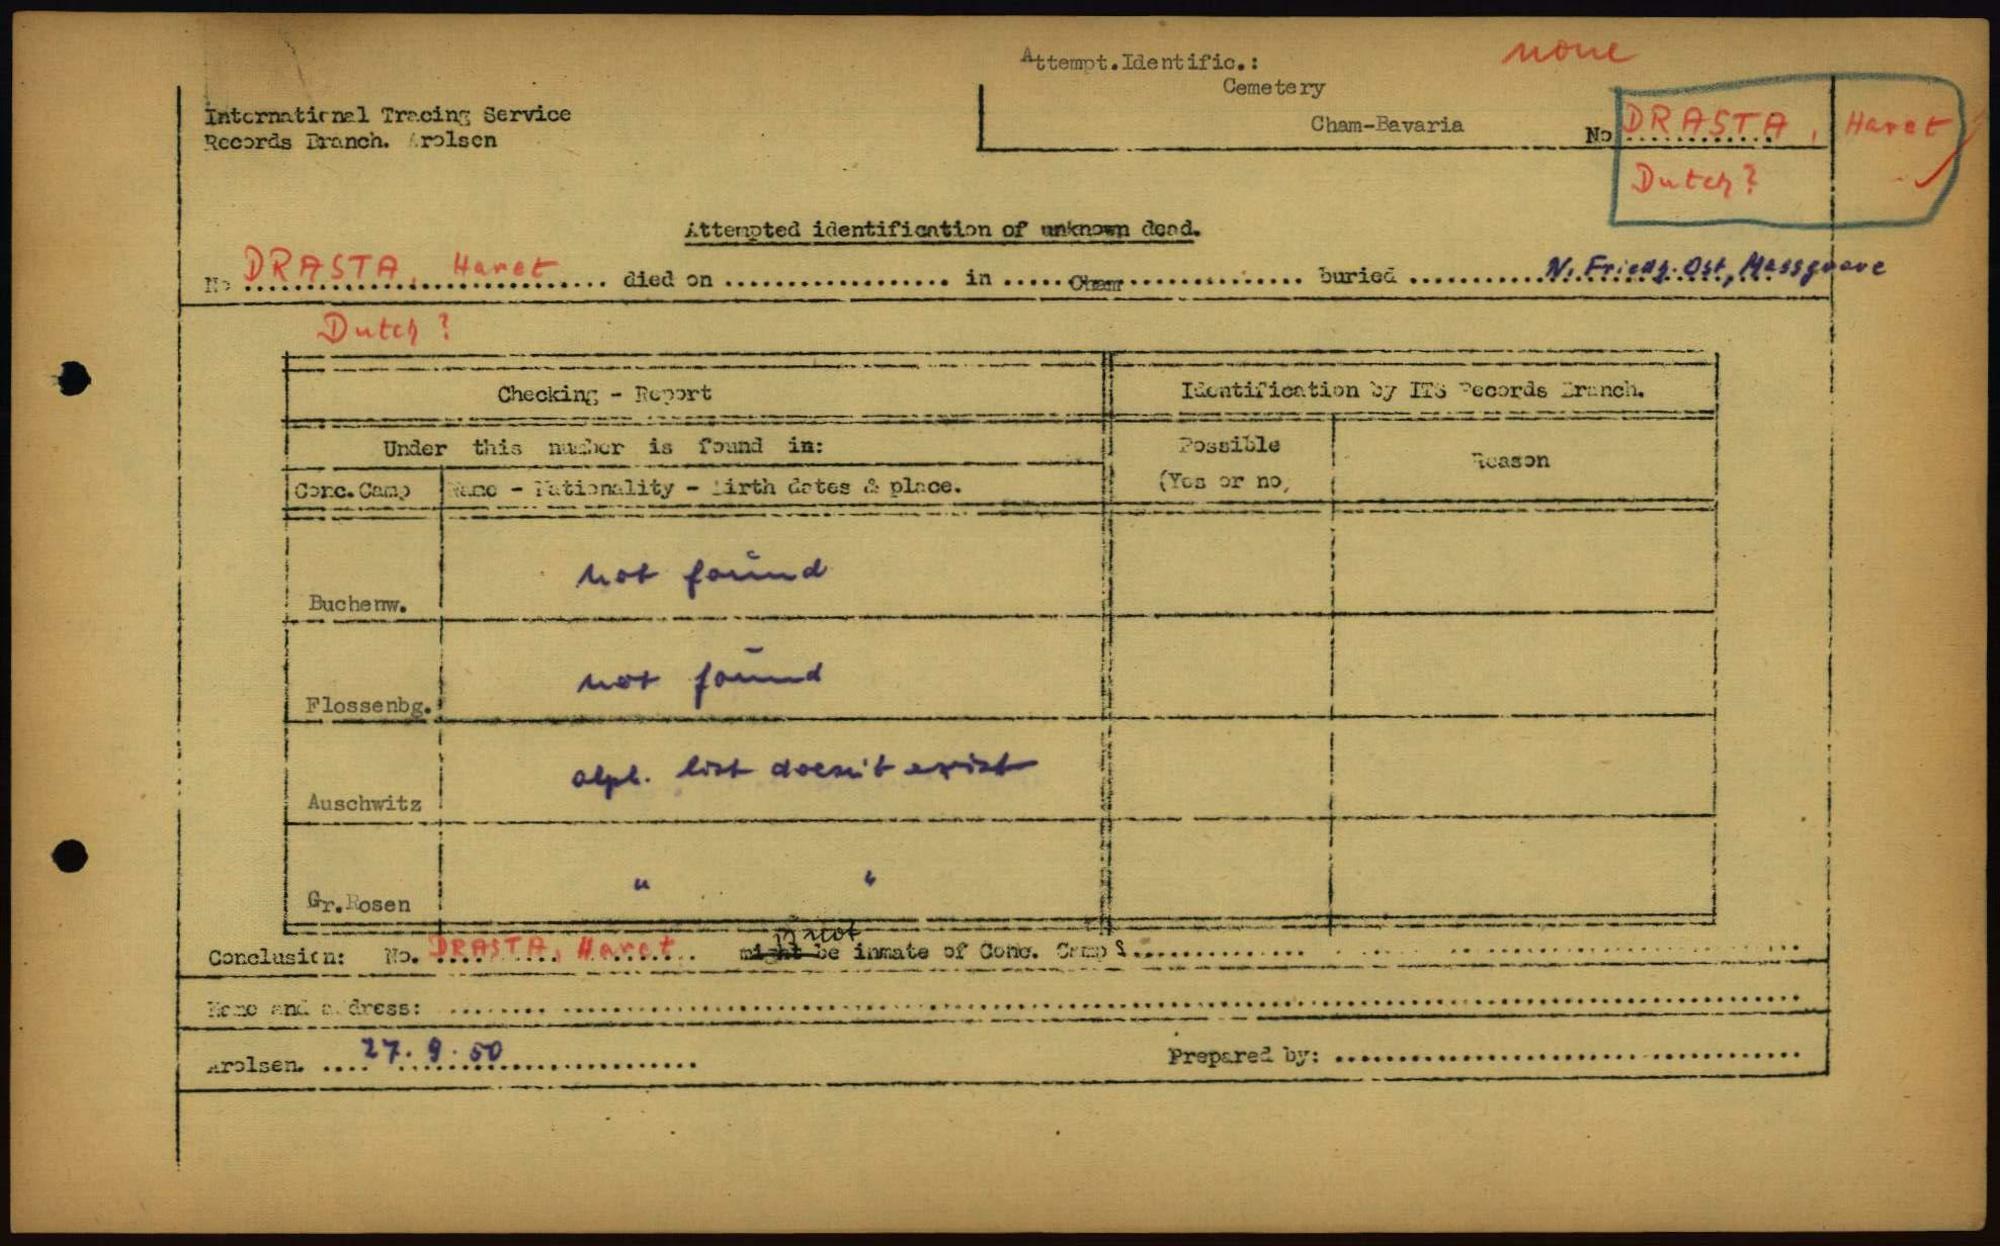 none
Attempt.Identific.:
Cemetery
Cham-Bavaria
International Tracing Service
Records Branch. Arolsen
No DRASTA, Haret
Dutch?
Attempted identification of unknown dead.
No DRASTA, Haret died on .................. in ..... Cham .............. buried .......... N. Friedh. Ost, Massgrave
Dutch?
Checking - Report
Identification by ITS Records Branch.
Under this number is found in:
Possible
(Yes or no,
Reason
Conc.Camp
Name - Nationality - Birth dates & place.
not found
Buchenw.
not found
Flossenbg.
alph. list doesn't exist
Auschwitz
" "
Gr.Rosen
not
Conclusion: No. DRASTA, Haret might be inmate of Conc. Camp
Name and address: ..........
Arolsen. .... 27. 9. 50 ..........
Prepared by: ..........